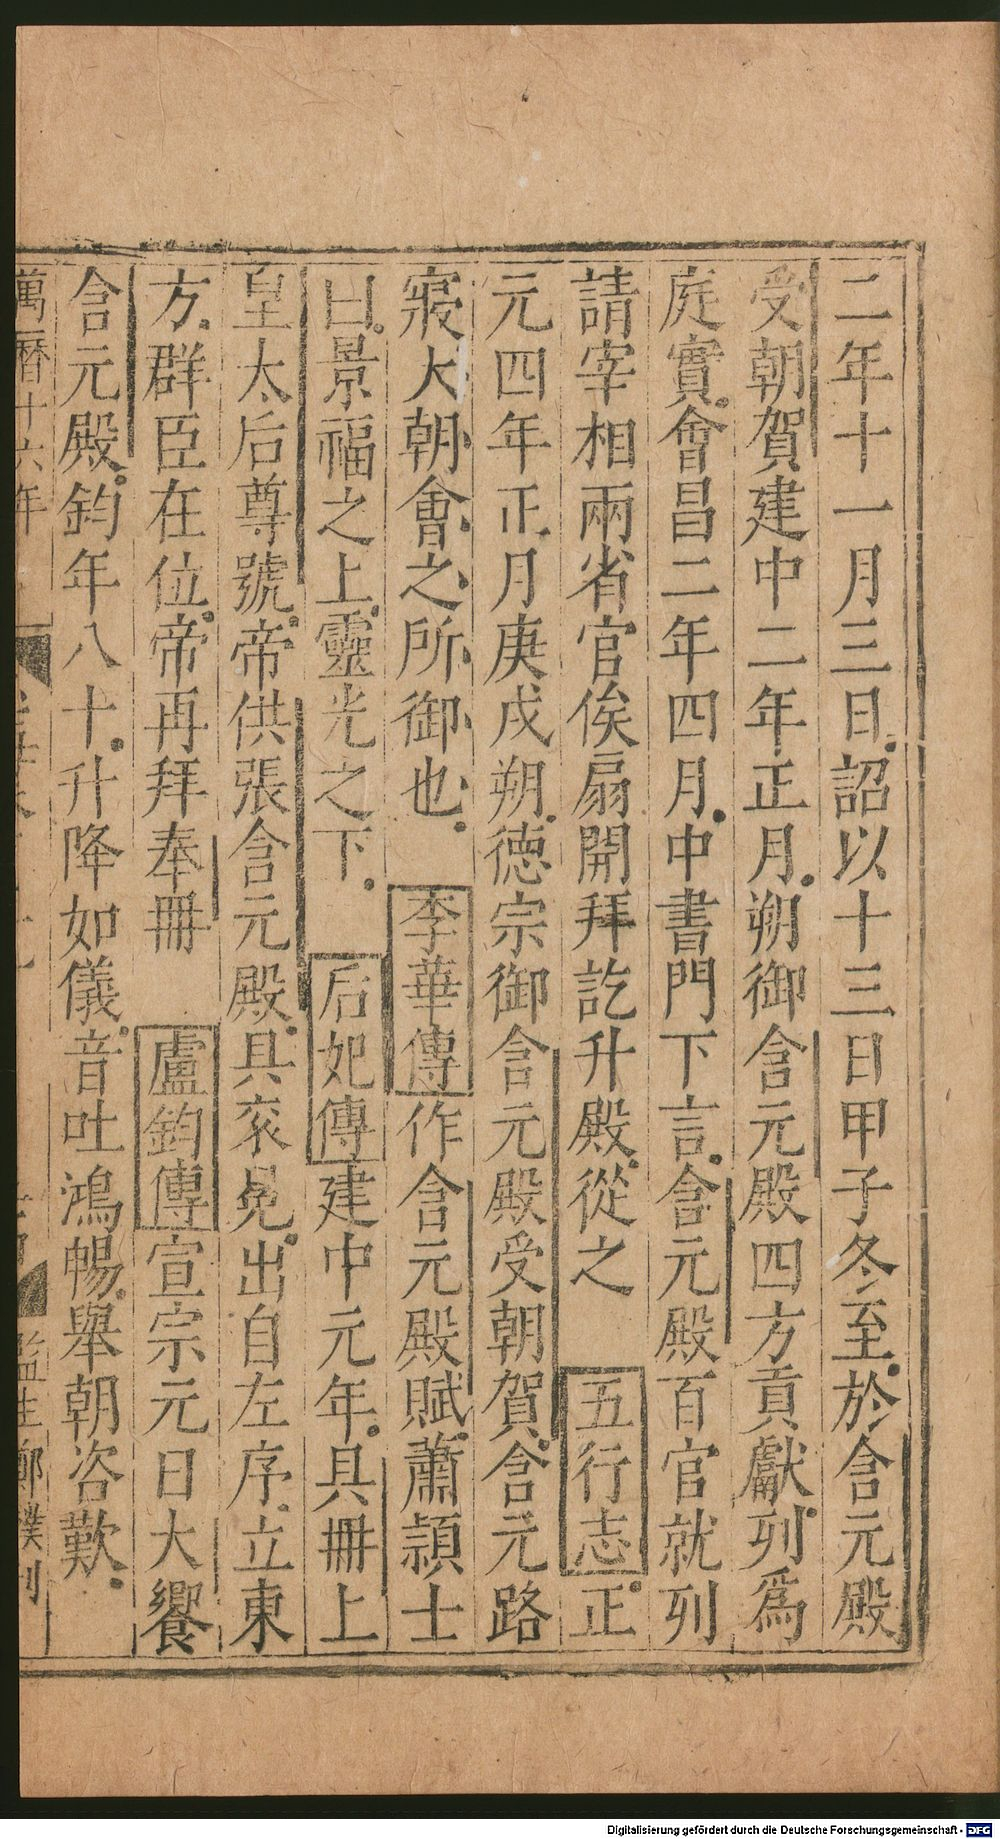 二年十一月三日詔以十三日甲子冬至於含元殿
受朝賀建中二年正月朔御含元殿四方貢獻列爲
庭實會昌二年四月中書門下言含元殿百官就列
請宰相兩省官俟扇開拜訖升殿從之　五行志正
元四年正月庚戌朔德宗御含元殿受朝賀含元路
寢大朝會之所御也　李華傳作含元殿賦蕭頴士
曰景福之上靈光之下　后妃傳建中元年具冊上
皇太后尊號帝供張含元殿具袞冕出自左序立東
方群臣在位帝再拜奉冊　盧鈞傳宣宗元日大饗
含元殿鈞年八十升降如儀音吐鴻暢舉朝咨歎
萬曆十六年
監生鄭濮刊
Digitalisierung gefördert durch die Deutsche Forschungsgemeinschaft - DFG